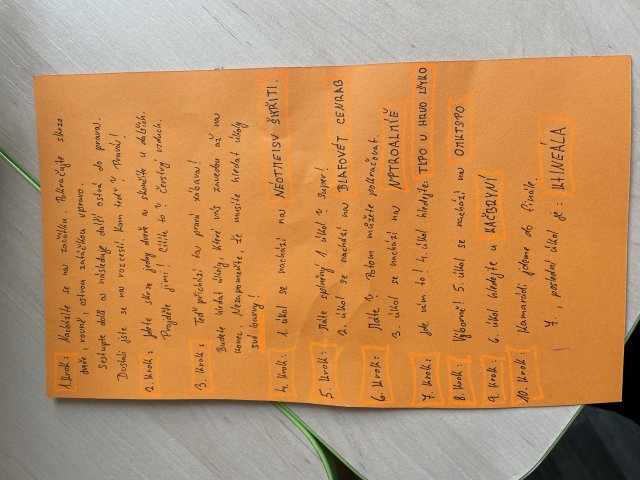 1. Krok: Nacházíte se na začátku. Pokračujte skrze
dveře, rovně, ostrou zatáčkou vpravo.
Sestupte dolů a následuje další ostrá do prava.
Dostali jste se na rozcestí. Kam teď? Pravá!
2. Krok: Jděte skrze jedny dveře a skončíte u dalších.
Projděte jimi! Cítíte to? Čerstvý vzduch.
3. Krok: Teď přichází ta pravá zábava!
Budete hledat úkoly, které vás zavedou až na
konec. Nezapomeňte, že musíte hledat úkoly
své barvy!
4. Krok: 1. úkol se nachází na NEOTMEISV ŠHŘITI.
5. Krok: Máte splněný 1. úkol? Super!
2. úkol se nachází na BLAFOVÉT CENRAB
6. Krok: Máte? Potom můžete pokračovat.
3. úkol se nachází na NPTROALMIĚ
7. Krok: Jde vám to! 4. úkol hledejte: TMPO U HRVO LŠYKO
8. Krok: Výborně! 5. úkol se nachází na OMKTSPO
9. Krok: 6. úkol hledejte u KAČBRYNÍ
10. Krok: Kamarádi jdeme do finále.
7., poslední úkol je: KLINEÁLA